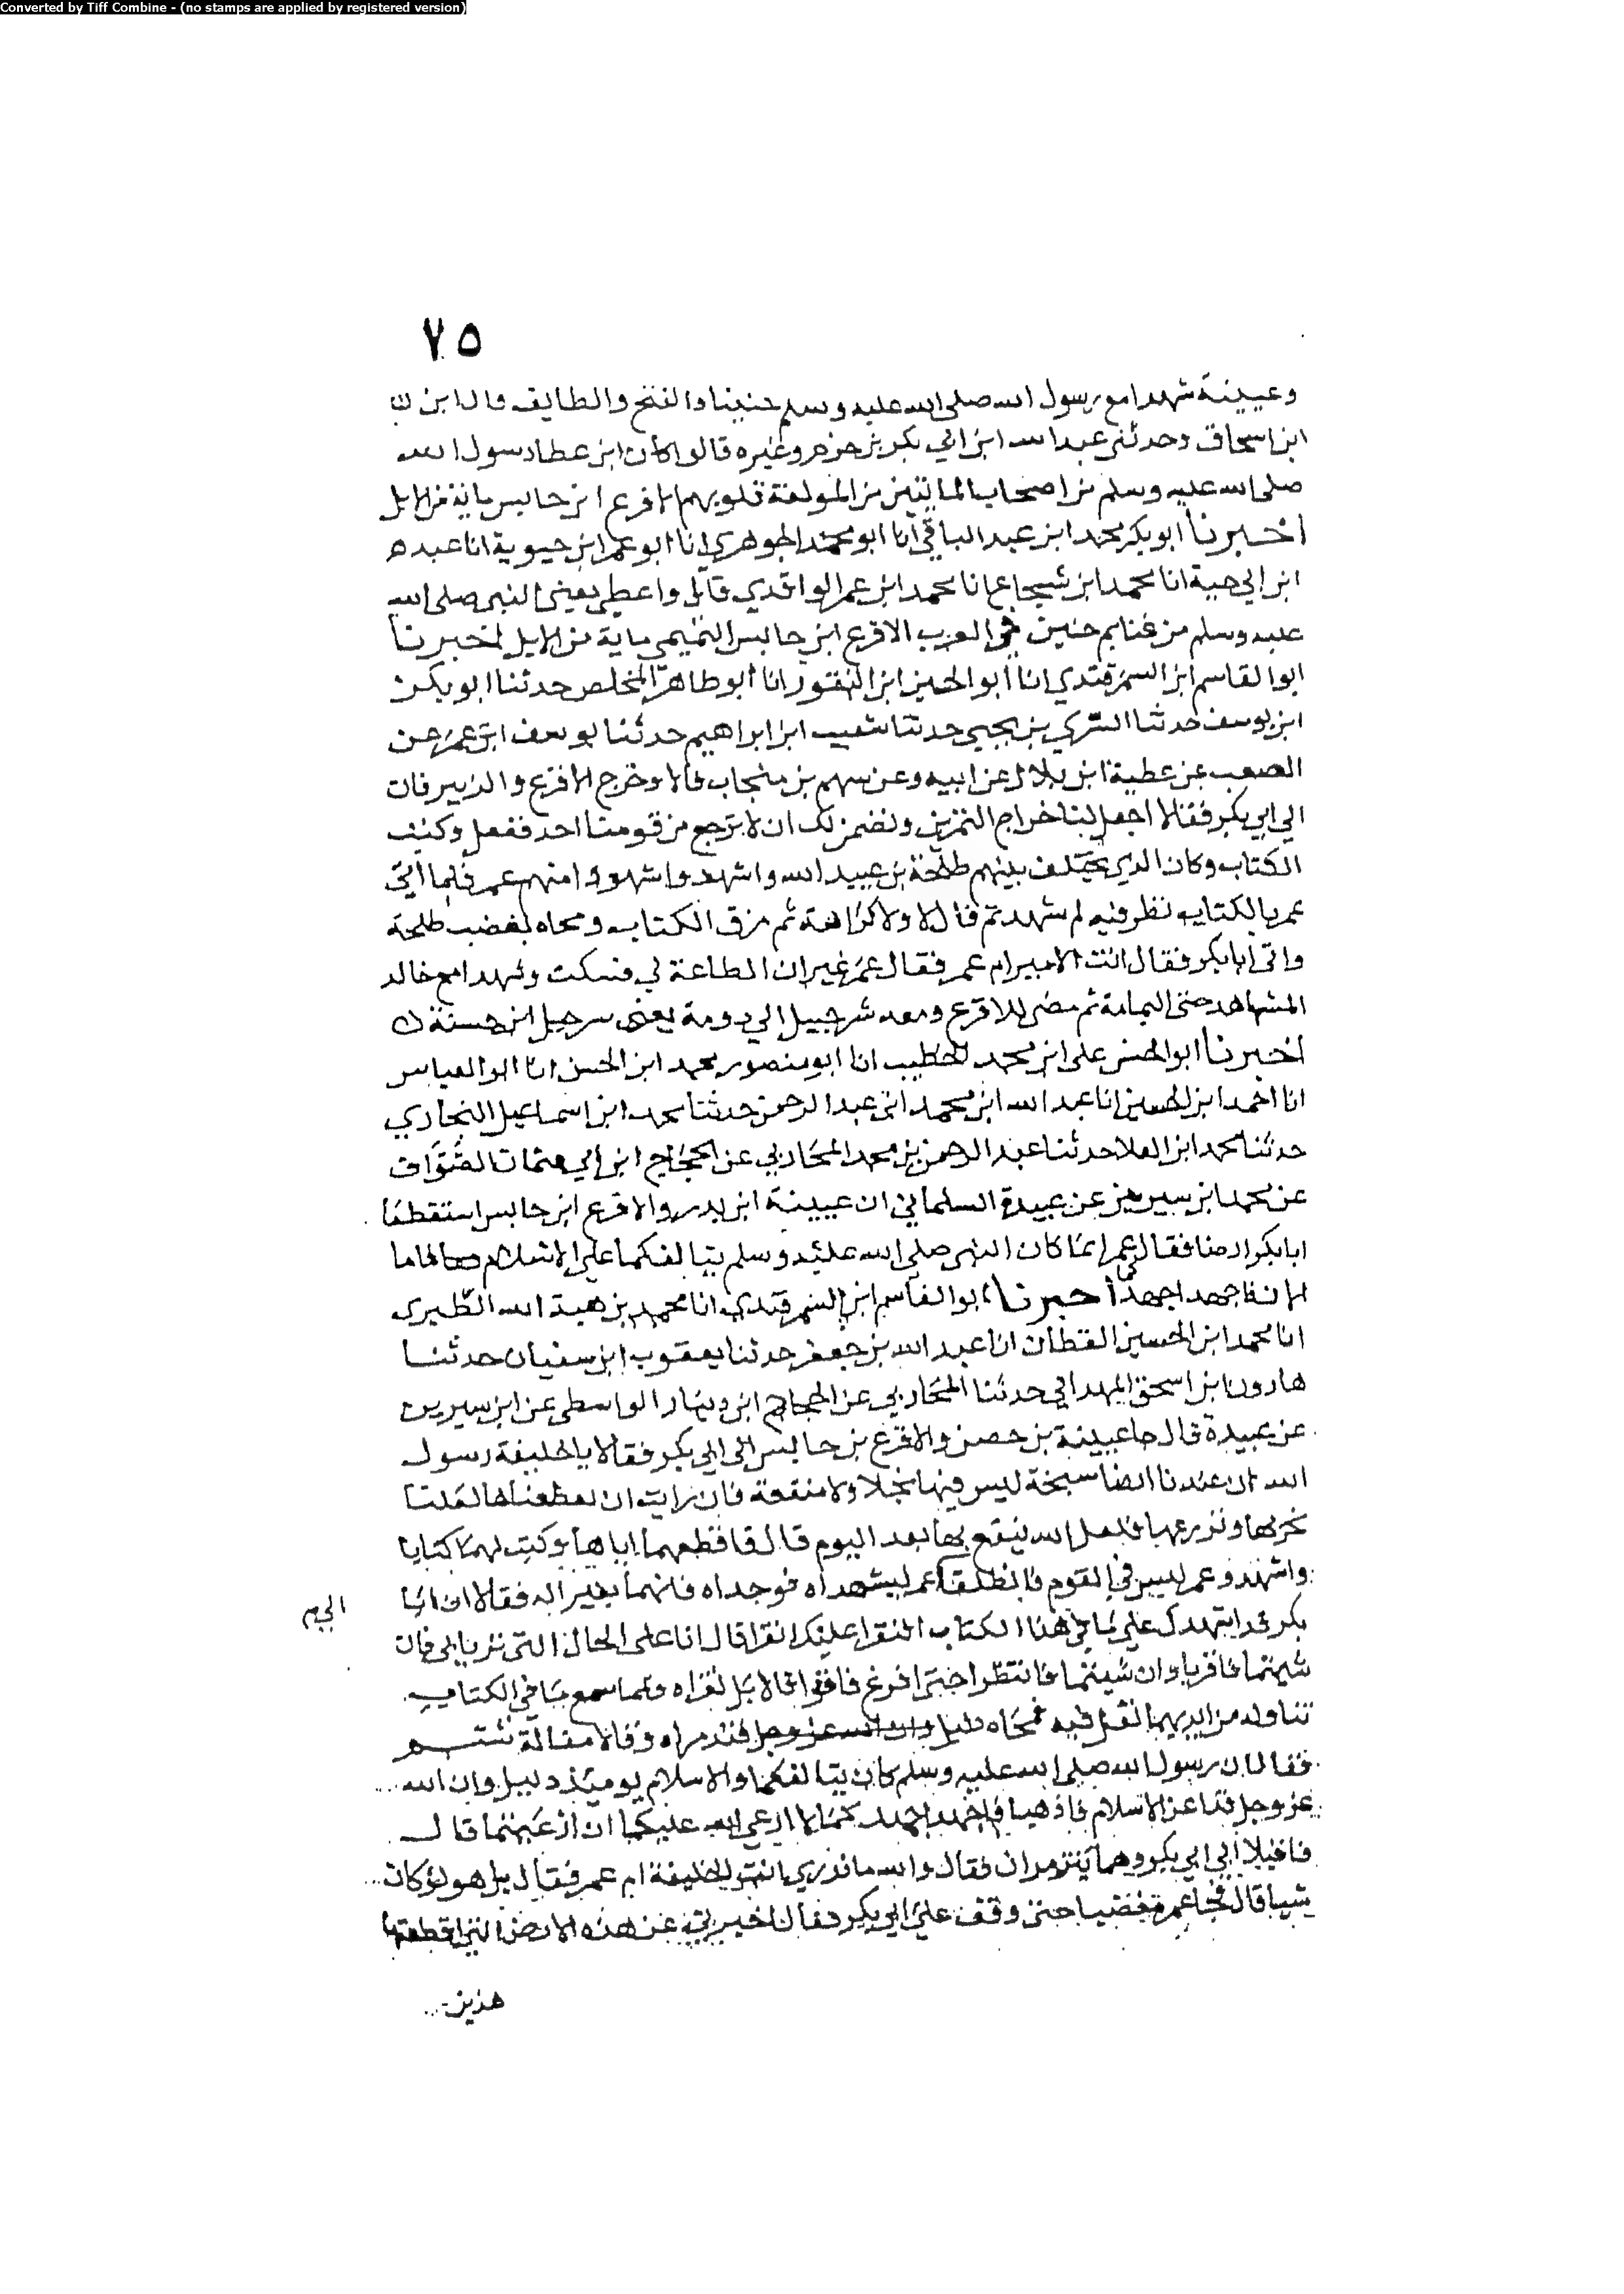 Converted by Tiff Combine - (no stamps are applied by registered version)
٧٥
وعيينة شهدا مع رسول الله صلى الله عليه وسلم حنينا والفتح والطايف قال ابن
ابن اسحاق وحدثني عبد الله ابن ابي بكر بن حزم وغيره قالوا كان ابن عطا رسول الله
صلى الله عليه وسلم من اصحاب المائتين من المولفة قلوبهم الاقرع ابن حابس ماية من الابل
اخبرنا ابو بكر محمد ابن عبد الباقي انا ابو محمد الجوهري انا ابو عمر ابن حيوية انا عبد ه
ابن ابي حية انا محمد ابن شجاع انا محمد ابن عمر الواقدي قال واعطى يعني النبي صلى الله
عليه وسلم من غنايم حنين في العرب الاقرع ابن حابس التميمي ماية من الابل اخبرنا
ابو القاسم ابن السمرقندي انا ابو الحسين ابن النقور انا ابو طاهر المخلص حدثنا ابو بكر
ابن يوسف حدثنا السري بن يحيى حدثنا شعيب ابن ابراهيم حدثنا يوسف ابن عمر عن
الصعب عن عطية ابن بلال عن ابيه وعن سهم بن منجاب قالا وخرج الاقرع والزبرقان
الي ابي بكر فقالا اجعل لنا خراج البحرين ونضمن لك ان لا يرجع من قومنا احد ففعل وكتب
الكتاب وكان الذي يختلف بينهم طلحة بن عبيد الله واشهدوا شهودا منهم عمر فلما اتى
عمر بالكتاب نظر فيه لم يشهد ثم قال لا ولا كرامة ثم مزق الكتاب ومحاه فغضب طلحة
واتى ابا بكر فقال انت الامير ام عمر فقال عمر غير ان الطاعة لي فسكت وشهدا مع خالد
المشاهد حتى اليمامة ثم مضى الاقرع ومعه شرحبيل الي دومة يعني سرحبيل ابن حسنة
اخبرنا ابو الحسن على ابن محمد الخطيب انا ابو منصور محمد ابن الحسن انا ابو العباس
انا احمد ابن الحسين انا عبد الله ابن محمد ابن عبد الرحمن حدثنا محمد ابن اسماعيل البخاري
حدثنا محمد ابن العلا حدثنا عبد الرحمن بن محمد المحاربي عن الحجاج ابن ابي عثمان الصواف
عن محمد ابن سيرين عن عبيدة السلماني ان عيينة ابن بدر والاقرع ابن حابس استقطعا
ابا بكر ارضا فقال عمر انما كان النبي صلى الله عليه وسلم يتالفكما على الاسلام فاما
الان فاجهدا جهدكما اخبرنا ابو القاسم ابن السمرقندي انا محمد بن هبة الله الطبري
انا محمد ابن الحسين القطان انا عبد الله بن جعفر حدثنا يعقوب ابن سفيان حدثنا
هارون ابن اسحق الهمداني حدثنا المحاربي عن الحجاج ابن دينار الواسطى عن ابن سيرين
عن عبيدة قال جا عيينة بن حصن والاقرع بن حابس الى ابي بكر فقالا يا خليفة رسول
الله ان عندنا ارضا سبخة ليس فيها كلا ولا منفعة فان رايت ان تقطعناها لعلنا
نحرثها ونزرعها فلعل الله ينفع بها بعد اليوم قال فاقطعهما اياها وكتب لهما كتابا
واشهد وعمر ليس في القوم فانطلقا الى عمر ليشهداه فوجداه قائما يهنا بعيرا له فقالا ان ابا
بكر قد اشهدك على ما في هذا الكتاب افنقرا عليك ام تقرا قال انا على الحال التي ترياني فان
شيتما فاقريا وان شيتما فانتظرا حتى افرغ فاقرا قالا بل نقراه فلما سمع ما في الكتاب
تناوله من ايديهما تفل فيه فمحاه فتذمرا وقالا مقالة شتم
فقال ان رسول الله صلى الله عليه وسلم كان يتالفكما والاسلام يوميذ دليل وان الله
عز وجل قد اعز الاسلام فاذهبا فاجهدا جهدكما لا ارعى الله عليكما ان ارعيتما قال
فاقبلا الي ابي بكر وهما يتذمران فقال والله ما ندري انت الخليفة ام عمر فقال بل هو لو كان
شيا قال فجا عمر مغضبا حتى وقف على ابي بكر فقال اخبرني عن هذه الارض التي اقطعتها
هذين